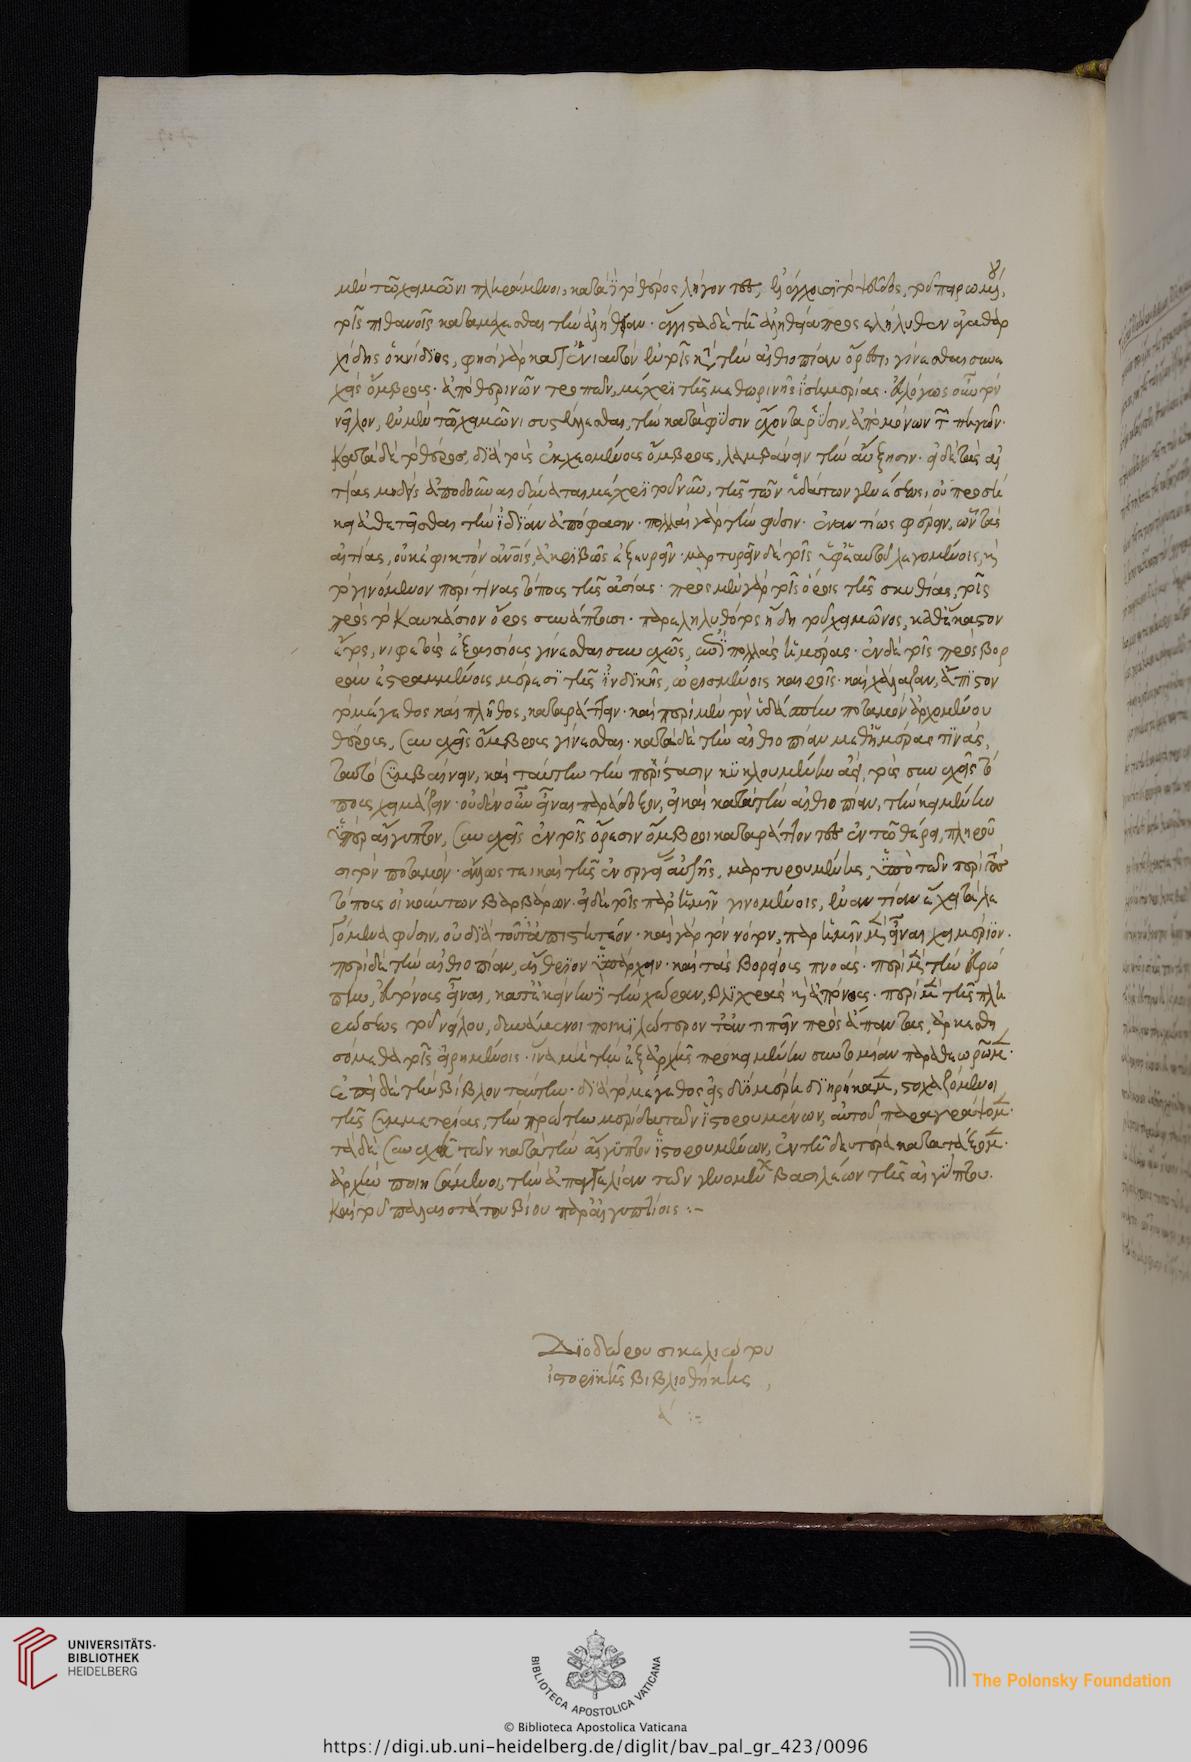 μὲν τῶ χειμῶνι πληρούμενοι, κατὰ τὸ θέρος λήγοντος
ροις πιθανοῖς καταμάχεσθαι τὴν ἀλήθειαν· ἔγγιστα δὲ τῆ ἀληθεία προσελήλυθεν ἀγαθαρ
χίδης ὁ κνίδιος, φησὶ γὰρ κατ' ἐνιαυτὸν ἐν τοῖς κατὰ τὴν αἰθιοπίαν ὄρεσι, γίνεσθαι συνε
χεῖς ὄμβρους· ἀπὸ θερινῶν τροπῶν, μέχρι τῆς μεθωρινῆς ἰσημερίας· εὐλόγως οὖν τὸν
νεῖλον, ἐν μὲν τῶ χειμῶνι συστέλλεσθαι, τὴν κατὰ φύσιν ἔχοντα ῥύσιν, ἀπὸ μόνων τῶν πηγῶν·
κατὰ δὲ τὸ θέρος, διὰ τοὺς ἐκχεομένους ὄμβρους, λαμβάνειν τὴν αὔξησιν· εἰ δὲ τὰς αἰ
τίας μηδεὶς ἀποδοῦναι δύναται μέχρι τοῦ νῦν, τῆς τῶν ὑδάτων γενέσεως, οὐ προσή
κει ἀθετεῖσθαι τὴν ἰδίαν ἀπόφασιν· πολλὰ γὰρ τὴν φύσιν· ἐναντίως φέρειν, ὧν τὰς
αἰτίας, οὐκ ἐφικτὸν ἀνθρώποις, ἀκριβῶς ἐξευρεῖν· μαρτυρεῖν δὲ τοῖς ὑφ' ἑαυτοῦ λεγομένοις, καὶ
τὸ γινόμενον περί τινας τόπους τῆς ἀσίας· πρὸς μὲν γὰρ τοῖς ὅροις τῆς σκυθίας, τοῖς
πρὸς τὸ καυκάσιον ὄρος συνάπτουσι· παρεληλυθότος ἤδη τοῦ χειμῶνος, καθ' ἕκαστον
ἔτος, νιφετοὺς ἐξαισίους γίνεσθαι συνεχῶς, ἐπὶ πολλὰς ἡμέρας· ἐν δὲ τοῖς πρὸς βορ
ρᾶν ἐστραμμένοις μέρεσι τῆς ἰνδικῆς, ὡρισμένοις καιροῖς· καὶ χάλαζαν, ἄπιστον
τὸ μέγεθος καὶ πλῆθος, καταράττειν· καὶ περὶ μὲν τὸν ὑδάσπην ποταμὸν ἀρχομένου
θέρους, συνεχεῖς ὄμβρους γίνεσθαι· κατὰ δὲ τὴν αἰθιοπίαν μεθ' ἡμέρας τινάς,
ταυτὸ συμβαίνειν, καὶ ταύτην τὴν περίστασιν κυκλουμένην ἀεὶ, τοὺς συνεχεῖς τό
πους χειμάζειν· οὐδὲν οὖν εἶναι παράδοξον, εἰ καὶ κατὰ τὴν αἰθιοπίαν, τὴν κειμένην
ὑπὲρ αἰγύπτου, συνεχεῖς ἐν τοῖς ὄρεσιν ὄμβροι καταράττοντες ἐν τῶ θέρει, πληροῦ
σι τὸν ποταμὸν· ἄλλως τε καὶ τῆς ἐναργείας αὐτῆς, μαρτυρουμένης, ὑπὸ τῶν περὶ τοὺς
τόπους οἰκούντων βαρβάρων· εἰ δὲ τοῖς παρ' ἡμῖν γινομένοις, ἐναντίαν ἔχει τὰ λε
γόμενα φύσιν, οὐ διὰ τοῦτο ἀπιστευτέον· καὶ γὰρ τὸν νότον, παρ' ἡμῖν μὲν εἶναι χειμέριον·
περὶ δὲ τὴν αἰθιοπίαν, αἴθριον ὑπάρχειν· καὶ τὰς βορείους πνοάς· περὶ μὲν τὴν εὐρώ
πην, εὐτόνους εἶναι, κατ' ἐκείνην τὴν χώραν, βληχρὰς καὶ ἀτόνους· περὶ μὲν τῆς πλη
ρώσεως τοῦ νείλου, δυνάμενοι ποικιλώτερον ἀντιπεῖν πρὸς ἅπαντας, ἀρκεσθη
σόμεθα τοῖς εἰρημένοις· ἵνα μὴ τὴν ἐξ ἀρχῆς προκειμένην συντομίαν παραθεωρῶμεν·
ἐπεὶ δὲ τὴν βίβλον ταύτην· διὰ τὸ μέγεθος εἰς δύο μέρη διῃρήκαμεν, στοχαζόμενοι
τῆς συμμετρίας, τὴν πρώτην μερίδα τῶν ἱστορουμένων, αὐτοῦ παραγράψομεν·
τὰ δὲ συνεχῆ τῶν κατὰ τὴν αἴγυπτον ἱστορουμένων, ἐν τῆ δευτέρα κατατάξομεν·
ἀρχὴν ποιησάμενοι, τὴν ἀπαγγελίαν τῶν γενομένων βασιλέων τῆς αἰγύπτου·
καὶ τοῦ παλαιοτάτου βίου παρ' αἰγυπτίοις :-
Διοδώρου σικελιώτου
ἱστορικῆς βιβλιοθήκης
α' :-
UNIVERSITÄTS-
BIBLIOTHEK
HEIDELBERG
BIBLIOTECA APOSTOLICA VATICANA
The Polonsky Foundation
© Biblioteca Apostolica Vaticana
https://digi.ub.uni-heidelberg.de/diglit/bav_pal_gr_423/0096